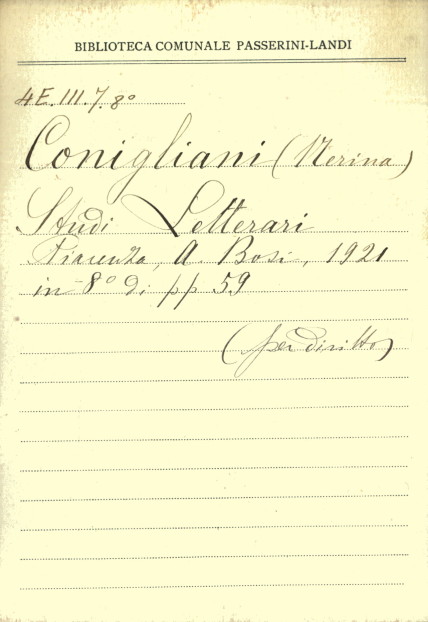 BIBLIOTECA COMUNALE PASSERINI-LANDI
4E.III.7.8º
Conigliani (Nerina)
Studi Letterari
Piacenza, A. Bosi, 1921
in 8º di pp 59
(per diritto)